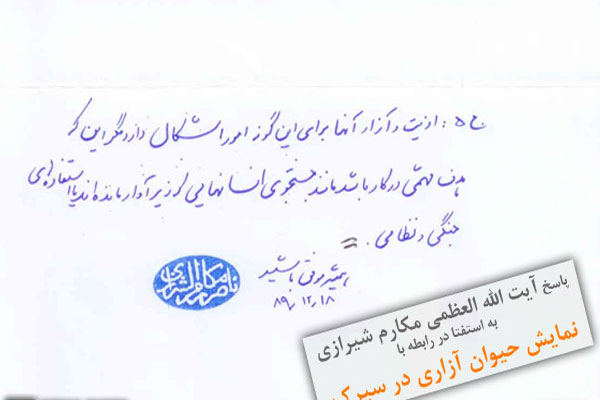 ج۵: اذیت و آزار آنها برای این گونه امور اشکال دارد مگر این که
هدف مهمّی در کار باشد مانند جستجوی انسانهایی که زیر آوار مانده‌اند یا استفاده‌های
جنگی و نظامی.
همیشه موفق باشید
۸۹،۱۲،۱۸
ناصر مکارم الشیرازی
پاسخ آیت الله العظمی مکارم شیرازی
به استفتا در رابطه با
نمایش حیوان آزاری در سیرک